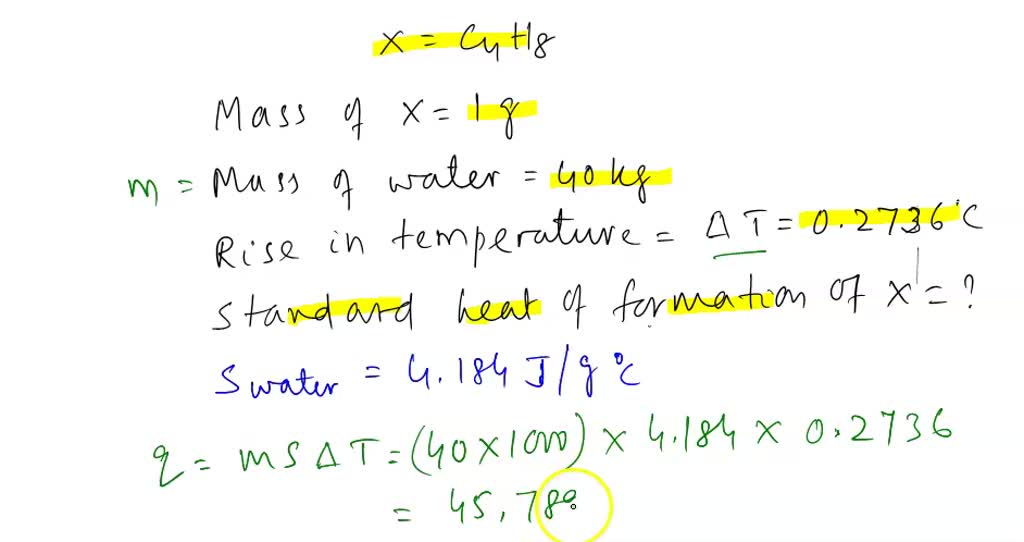 x = C4H8
Mass of x = 1 g
m = Mass of water = 40 kg
Rise in temperature = ΔT = 0.2736 °C
standard heat of formation of x = ?
S water = 4.184 J/g °C
q = m S ΔT = (40 x 1000) x 4.184 x 0.2736
= 45,789